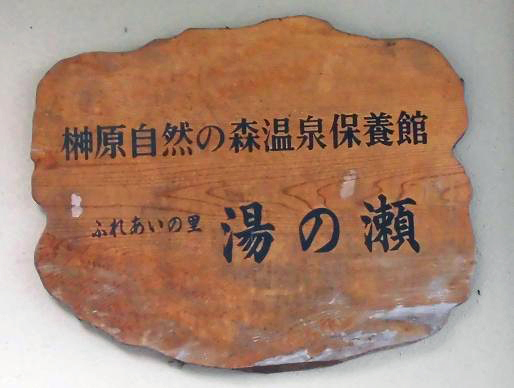 榊原自然の森温泉保養館
ふれあいの里 湯の瀬